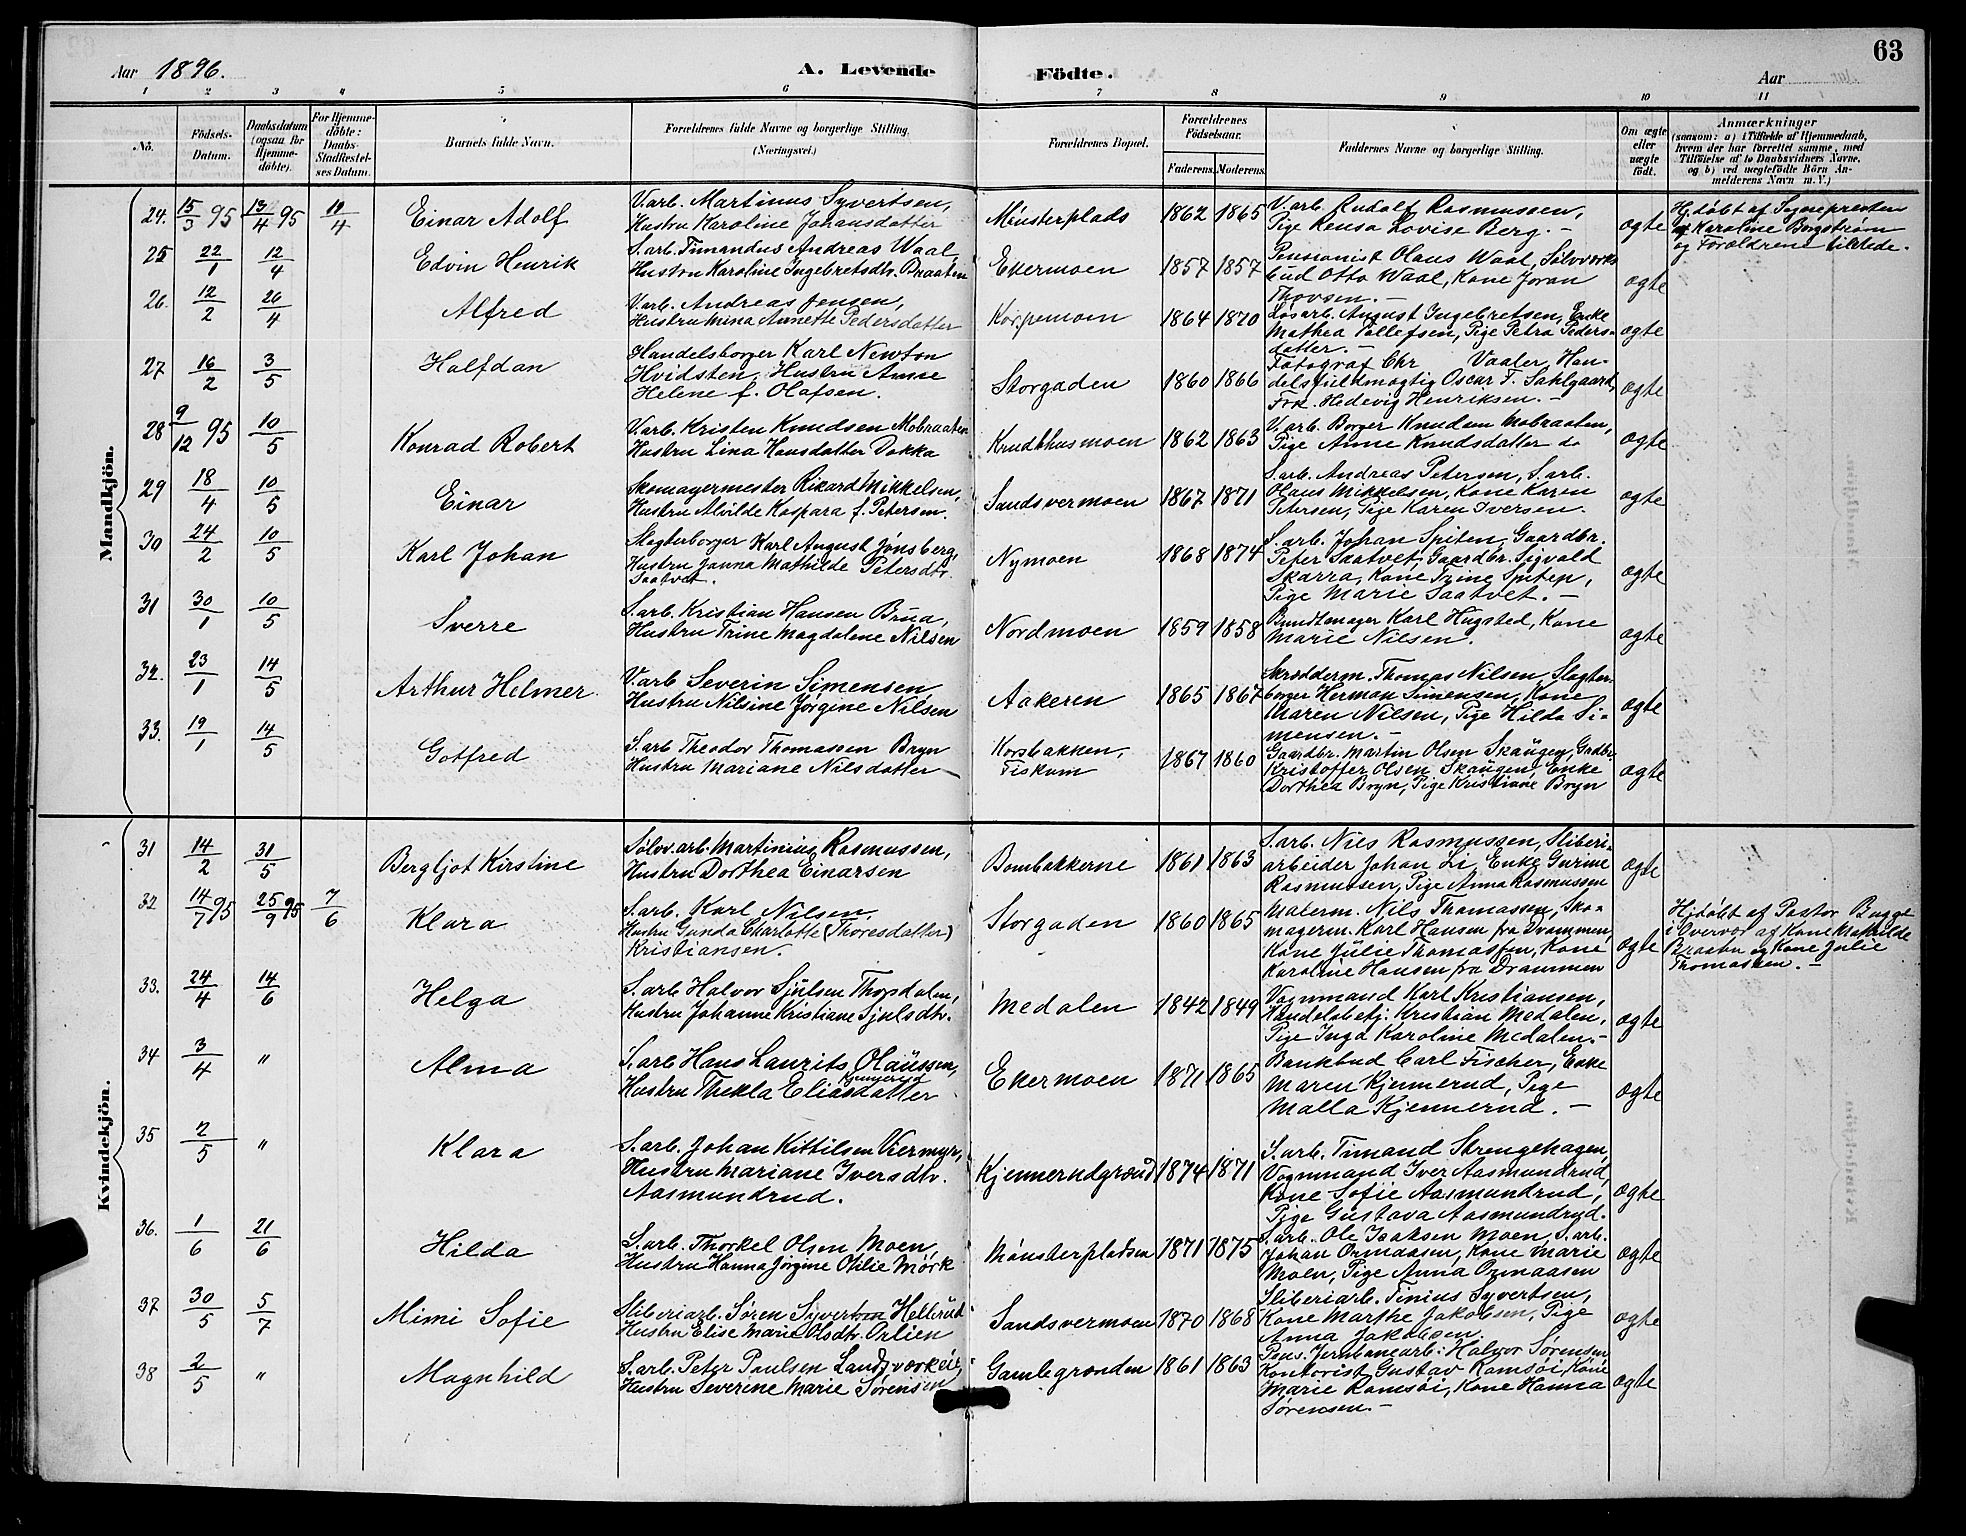 63
Aar 1896.
A. Levende
Födte.
Aar
1 2 3 4 5 6 7 8 9 10 11
No.
Födsels-
Datum.
Daabsdatum
(ogsaa for
Hjemme-
döbte).
For Hjemme-
döbte:
Daabs-
Stadfæstel-
ses Datum.
Barnets fulde Navn.
Forældrenes fulde Navne og borgerlige Stilling.
(Næringsvei.)
Forældrenes Bopæl.
Forældrenes
Födselsaar.
Faderens. Moderens.
Faddernes Navne og borgerlige Stilling.
Om ægte
eller
uægte
födt.
Anmærkninger
(saasom: a) i Tilfælde af Hjemmedaab,
hvem der har forrettet samme, med
Tilföielse af to Daabsvidners Navne,
og b) ved uægtefödte Börn An-
melderens Navn m. V.)
Mandkjön.
24. 15/3 95 13/4 95 19/4 Einar Adolf
V.arb. Martinus Syvertsen,
Hustru Karoline Johansdatter
Münsterplads 1862 1865
V.arb. Rudolf Rasmussen,
Pige Lovise Berg. —
ægte
Hj.døbt af Sognepresten
Karoline Borgstrøm
og Forældrene tilstede.
25 22/1 12/4 Edvin Henrik
S.arb. Timandus Andreas Waal,
Hustru Karoline Ingebretsdtr. Braaten
Ekermoen 1857 1857
Pensionist Olaus Waal, Sølvverks
bud Otto Waal, Kone Joran
Thovsen. —
ægte
26. 12/2 26/4 Alfred
V.arb. Andreas Jensen,
Hustru Mina Annette Pedersdatter
Korpemoen 1864 1870
Løsarb. August Ingebretsen, Enke
Mathea Tollefsen, Pige Petra Peders-
datter. —
ægte
27 16/2 3/5 Halfdan
Handelsborger Karl Newton
Hvidsten, Hustru Anne
Helene f. Olafsen.
Storgaden 1860 1866
Fotograf Chr Vaaler, Han-
delsfuldmægtig Oscar F. Sahlgaard,
Frk. Hedevig Henriksen. —
ægte
28 9/12 95 10/5 Konrad Robert
V.arb. Kristen Knudsen Mobraaten
Hustru Lina Hansdatter Dokka
Krudthusmoen 1862 1863
V.arb. Borger Knudsen Mobraaten,
Pige Anne Knudsdatter do
ægte
29 18/4 10/5 Einar
Skomagermester Rikard Mikkelsen,
Hustru Alvilde Kaspara f. Petersen.
Sandsvermoen 1867 1871
S.arb. Andreas Petersen, S.arb.
Olaus Mikkelsen, Kone Karen
Petersen, Pige Karen Iversen.
ægte
30 24/2 10/5 Karl Johan
Slagterborger Karl August Jønsberg,
Hustru Janna Mathilde Petersdtr.
Saatvet.
Nymoen 1868 1874
S.arb. Johan Spiten, Gaardbr.
Peter Saatvet, Gaardbr. Sigvald
Skarra, Kone Trine Spiten,
Pige Marie Saatvet. —
ægte
31 30/1 10/5 Sverre
S.arb. Kristian Hansen Brua,
Hustru Trine Magdalene Nilsen
Nordmoen 1859 1858
Bundtmager Karl Hugsted, Kone
Marie Nilsen.
ægte
32. 23/1 14/5 Arthur Helmer.
V.arb Severin Simensen,
Hustru Nilsine Jørgine Nilsen
Aakeren 1865 1867
Skrædderm. Thomas Nilsen, Slagter-
borger Herman Simensen, Kone
Maren Nilsen, Pige Hilda Si-
mensen. —
ægte
33. 19/1 14/5 Gotfred
S.arb Theodor Thomassen Bryn
Hustru Mariane Nilsdatter —
Korsbakken,
Fiskum
1867 1860
Gaardbr. Martin Olsen Skaugen, Gadbr.
Kristoffer Olsen Skaugen, Enke
Dorthea Bryn, Pige Kristiane Bryn
ægte
Kvindekjön.
31 14/2 31/5 Bergljot Kirstine
Sølvv.arb. Martinius Rasmussen,
Hustru Dorthea Einarsen
Bombakkerne 1861 1863
S.arb. Nils Rasmussen, Sliberi-
arbeider Johan Li, Enke Gurine
Rasmussen, Pige Anna Rasmussen
ægte
32 14/7 95 25/9 95 7/6 Klara
S.arb. Karl Nilsen,
Hustru Gunda Charlotte (Thoresdatter)
Kristiansen.
Storgaden 1860 1865
Malerm. Nils Thomassen, Sko-
magerm. Karl Hansen fra Drammen,
Kone Julie Thomassen, Kone
Karoline Hansen fra Drammen
ægte
Hj.døbt af Pastor Bugge
i Overvær af Kone Mathilde
Braaten og Kone Julie
Thomassen. —
33. 24/4 14/6 Helga
S.arb Halvor Sjulsen Thopdalen,
Hustru Johanne Kristiane Sjulsdtr.
Medalen 1842 1849
Vognmand Karl Kristiansen,
Handelsbetj. Kristian Medalen,
Pige Inga Karoline Medalen. —
ægte
34 3/4 " Alma
S.arb Hans Laurits Olaussen,
Kjennerud
Hustru Thekla Eliasdatter
Ekermoen 1871 1865
Bankbud Carl Fischer, Enke
Maren Kjennerud, Pige
Malla Kjennerud. —
ægte
35 2/5 " Klara
S.arb. Johan Kittilsen Vermyr,
Hustru Mariane Iversdtr.
Aasmundrud.
Kjennerudgrænd 1874 1871
S.arb. Timand Strengehagen,
Vognmand Iver Aasmundrud,
Kone Sofie Aasmundrud,
Pige Gustava Aasmundrud.
ægte
36. 1/6 21/6 Hilda
S.arb. Thorkel Olsen Moen,
Hustru Hanna Jørgine Otilie Mørk
Münsterpladsen 1871 1875
S.arb. Ole Isaksen Moen, S.arb.
Johan Ormaasen, Kone Marie
Moen, Pige Anna Ormaasen
ægte
37 30/5 5/7 Mimi Sofie
Sliberiarb. Søren Syvertsen Hellerud
Hustru Elise Marie Olsdtr. Orlien
Sandsvermoen 1870 1868
Sliberiarb. Tinius Syvertsen,
Kone Marthe Jakobsen, Pige
Anna Jakobsen.
ægte
38 2/5 " Magnhild
S.arb. Peter Paulsen Landsverkeie,
Hustru Severine Marie Sørensen
Gamlegrænden 1861 1863
Pens. Jernbanearb: Halvor Sørensen
Kontorist Gustav Ramsøi, Kone
Marie Ramsøi, Kone Hanna
Sørensen. —
ægte